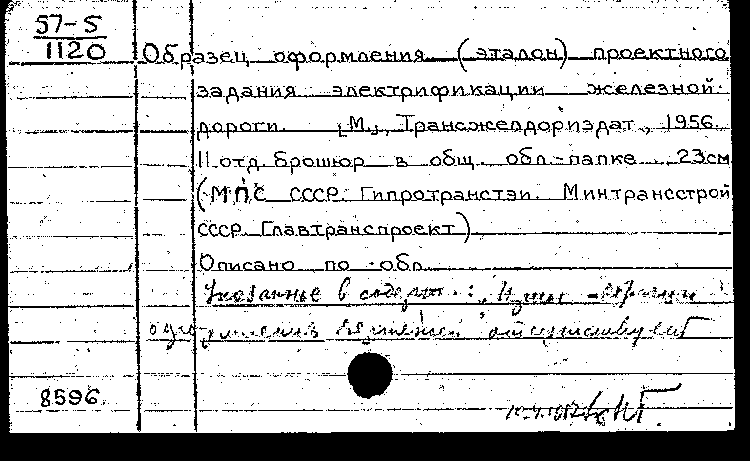 57-5
1120
Образец оформления (эталон) проектного
задания электрификации железной
дороги. [М.], Трансжелдориздат, 1956.
11 отд. брошюр в общ. обл.-папке. 23см
(МПС СССР. Гипротранстэи. Минтрансстрой
СССР. Главтранспроект)
Описано по обл.
Указанные в содерж.:
отсутствует
8596